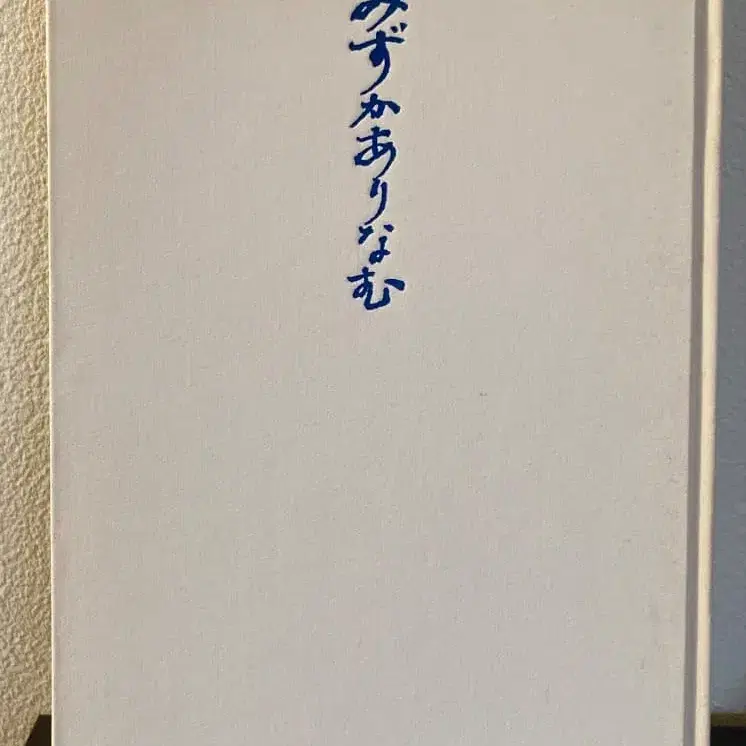 みずかありなむ